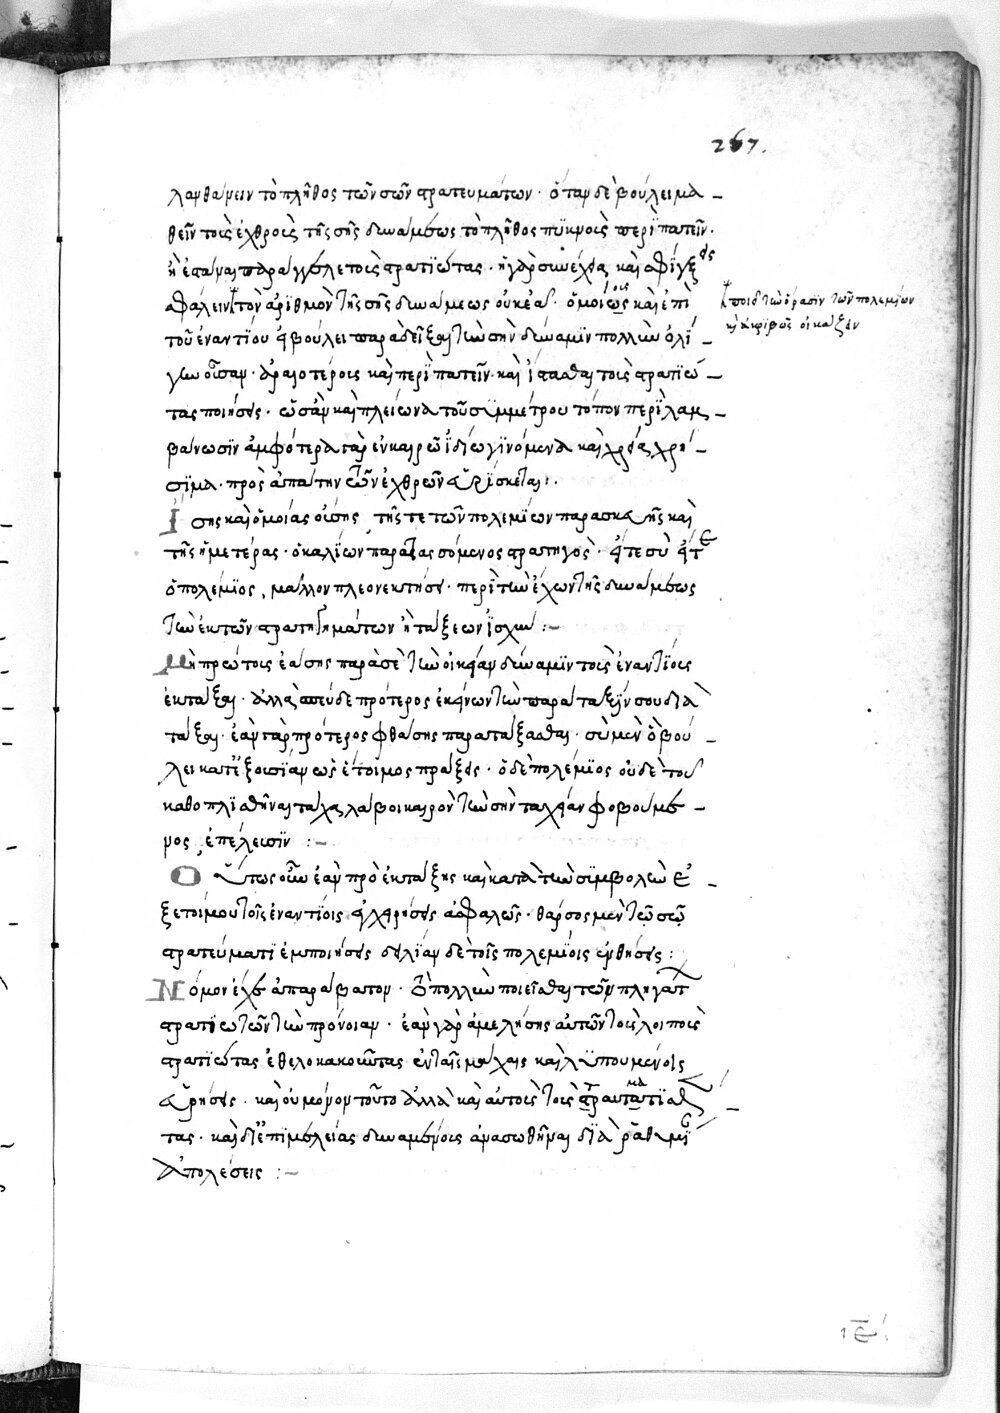 267.
λανθάνειν τὸ πλῆθος τῶν σῶν στρατευμάτων · ὅταν δὲ βούλει μα
θεῖν τοὺς ἐχθροὺς τῆς σῆς δυνάμεως τὸ πλῆθος πυκνοὺς περιπατεῖν ·
ἢ ἑστάναι παραγγελε τοῖς στρατιώταις · ἡ γὰρ συνέχεια καὶ σφίγξις
σφάλειν τὸν ἀριθμὸν τῆς σῆς δυνάμεως οὐκ ἐᾷ · ὁμοίως καὶ ἐπὶ
ποιεῖ τὴν ὅρασιν τῶν πολεμίων
καὶ ἀκριβῶς εἰκάζειν
τοῦ ἐναντίου εἰ βούλει παραδεῖξαι τὴν σὴν δύναμιν πολλὴν ὀλί
γην οὖσαν · ἀραιοτέροις καὶ περιπατεῖν καὶ ἵστασθαι τοὺς στρατιώ
τας ποιήσεις · ὡς ἂν καὶ πλείωνα τοῦ συμμέτρου τόπον περιλαμ
βάνωσιν ἀμφότερα γὰρ ἐν καιρῷ ἰδίῳ γινόμενα καὶ χρείας χρή
σιμα · πρὸς ἀπάτην τῶν ἐχθρῶν εὑρίσκεται ·
Ἴσης καὶ ὁμοίας οὔσης, τῆς τε τῶν πολεμίων παρασκευῆς καὶ
τῆς ἡμετέρας · ὁ καλλίων παρατασσόμενος στρατηγὸς · εἴτε σὺ εἴτε
ὁ πολέμιος, μᾶλλον πλεονεκτήσει · περὶ τὴν ἔχων τῆς δυνάμεως
τὴν ἐκ τῶν στρατηγημάτων ἢ τάξεων ἰσχὺν :~
Μὴ πρώτοις ἐάσῃς παρὰ σὲ τὴν οἰκείαν δύναμιν τοῖς ἐναντίοις
ἐκτάξαι · ἀλλὰ σπεῦδε πρότερος ἐκείνων τὴν παράταξίν σου δια
τάξαι · ἐὰν γὰρ πρότερος φθάσῃς παρατάξασθαι · σὺ μὲν ὃ βού
λει κατ' ἐξουσίαν ὡς ἕτοιμος πράξεις · ὁ δὲ πολέμιος οὐδὲ τοῦ
καθοπλισθῆναι τάχα λάβοι καιρὸν τὴν σὴν ταχεῖαν φοβούμε
νος, ἐπέλευσιν :~
Οὕτως οὖν ἐὰν πρὸ ἐκτάξῃς καὶ κατὰ τὴν συμβολὴν ἐ
ξ ἑτοίμου τοῖς ἐναντίοις ἐγχειρήσεις ἀσφαλῶς · θάρσος μὲν τῷ σῷ
στρατεύματι ἐμποιήσεις δειλίαν δὲ τοῖς πολεμίοις ἐνθήσεις :
Νόμον ἔχε ἀπαράβατον · τὸ πολλὴν ποιεῖσθαι τῶν πληγάτων
στρατιωτῶν τὴν πρόνοιαν · ἐὰν γὰρ ἀμελήσῃς αὐτῶν τοὺς λοιποὺς
στρατιώτας ἐθελοκακοῦντας ἐν ταῖς μάχαις καὶ λυπουμένους
εὑρήσεις · καὶ οὐ μόνον τοῦτο ἀλλὰ καὶ αὐτοὺς τοὺς τραυματίας
τας · καὶ δι' ἐπιμελείας δυναμένοις ἀνασωθῆναι διὰ ῥᾳθυμίαν
ἀπολέσεις :~